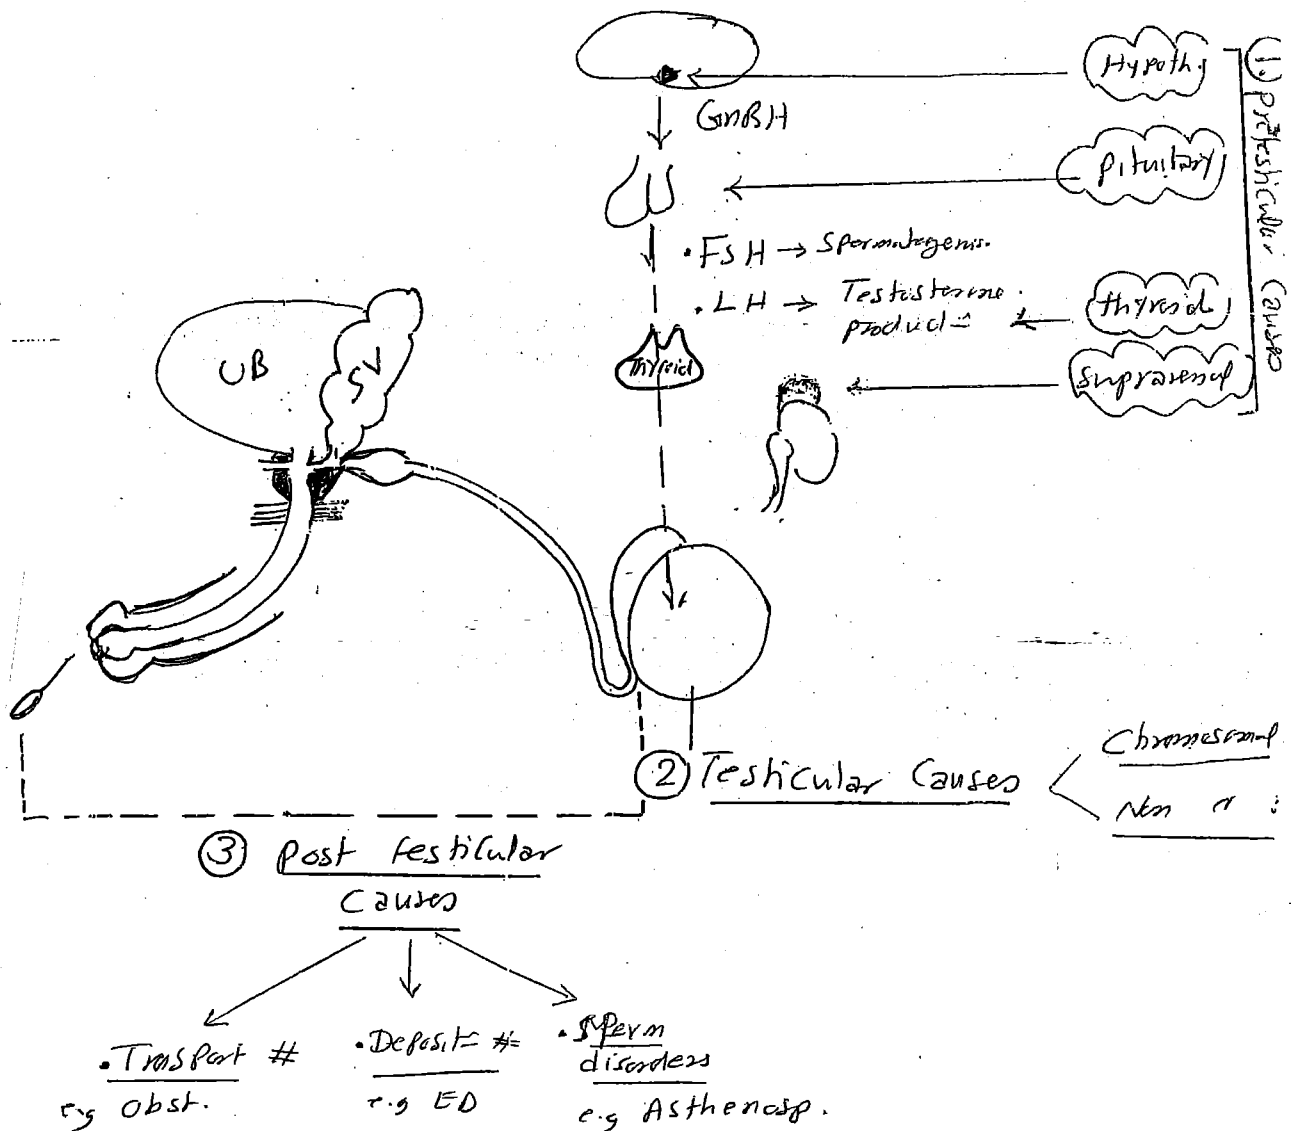 Hypoth.
GnRH
Pituitary
① Pretesticular Causes
• FSH → Spermatogenis.
• LH → Testosterone
product=
thyroid
Thyroid
Suprarenal
UB
SV
② Testicular Causes
Chromosomal
Non 〃 :
③ post testicular
Causes
• Trasport #
e.g Obst.
• Deposit= #
e.g ED
• Sperm
disorders
e.g Asthenosp.